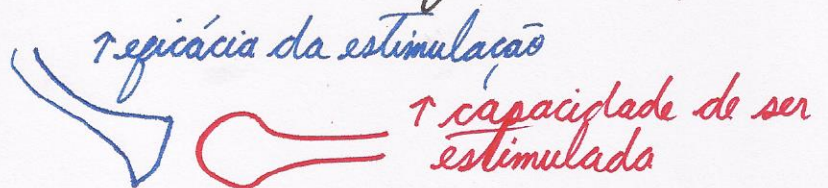 ↑ eficácia da estimulação
↑ capacidade de ser
estimulada